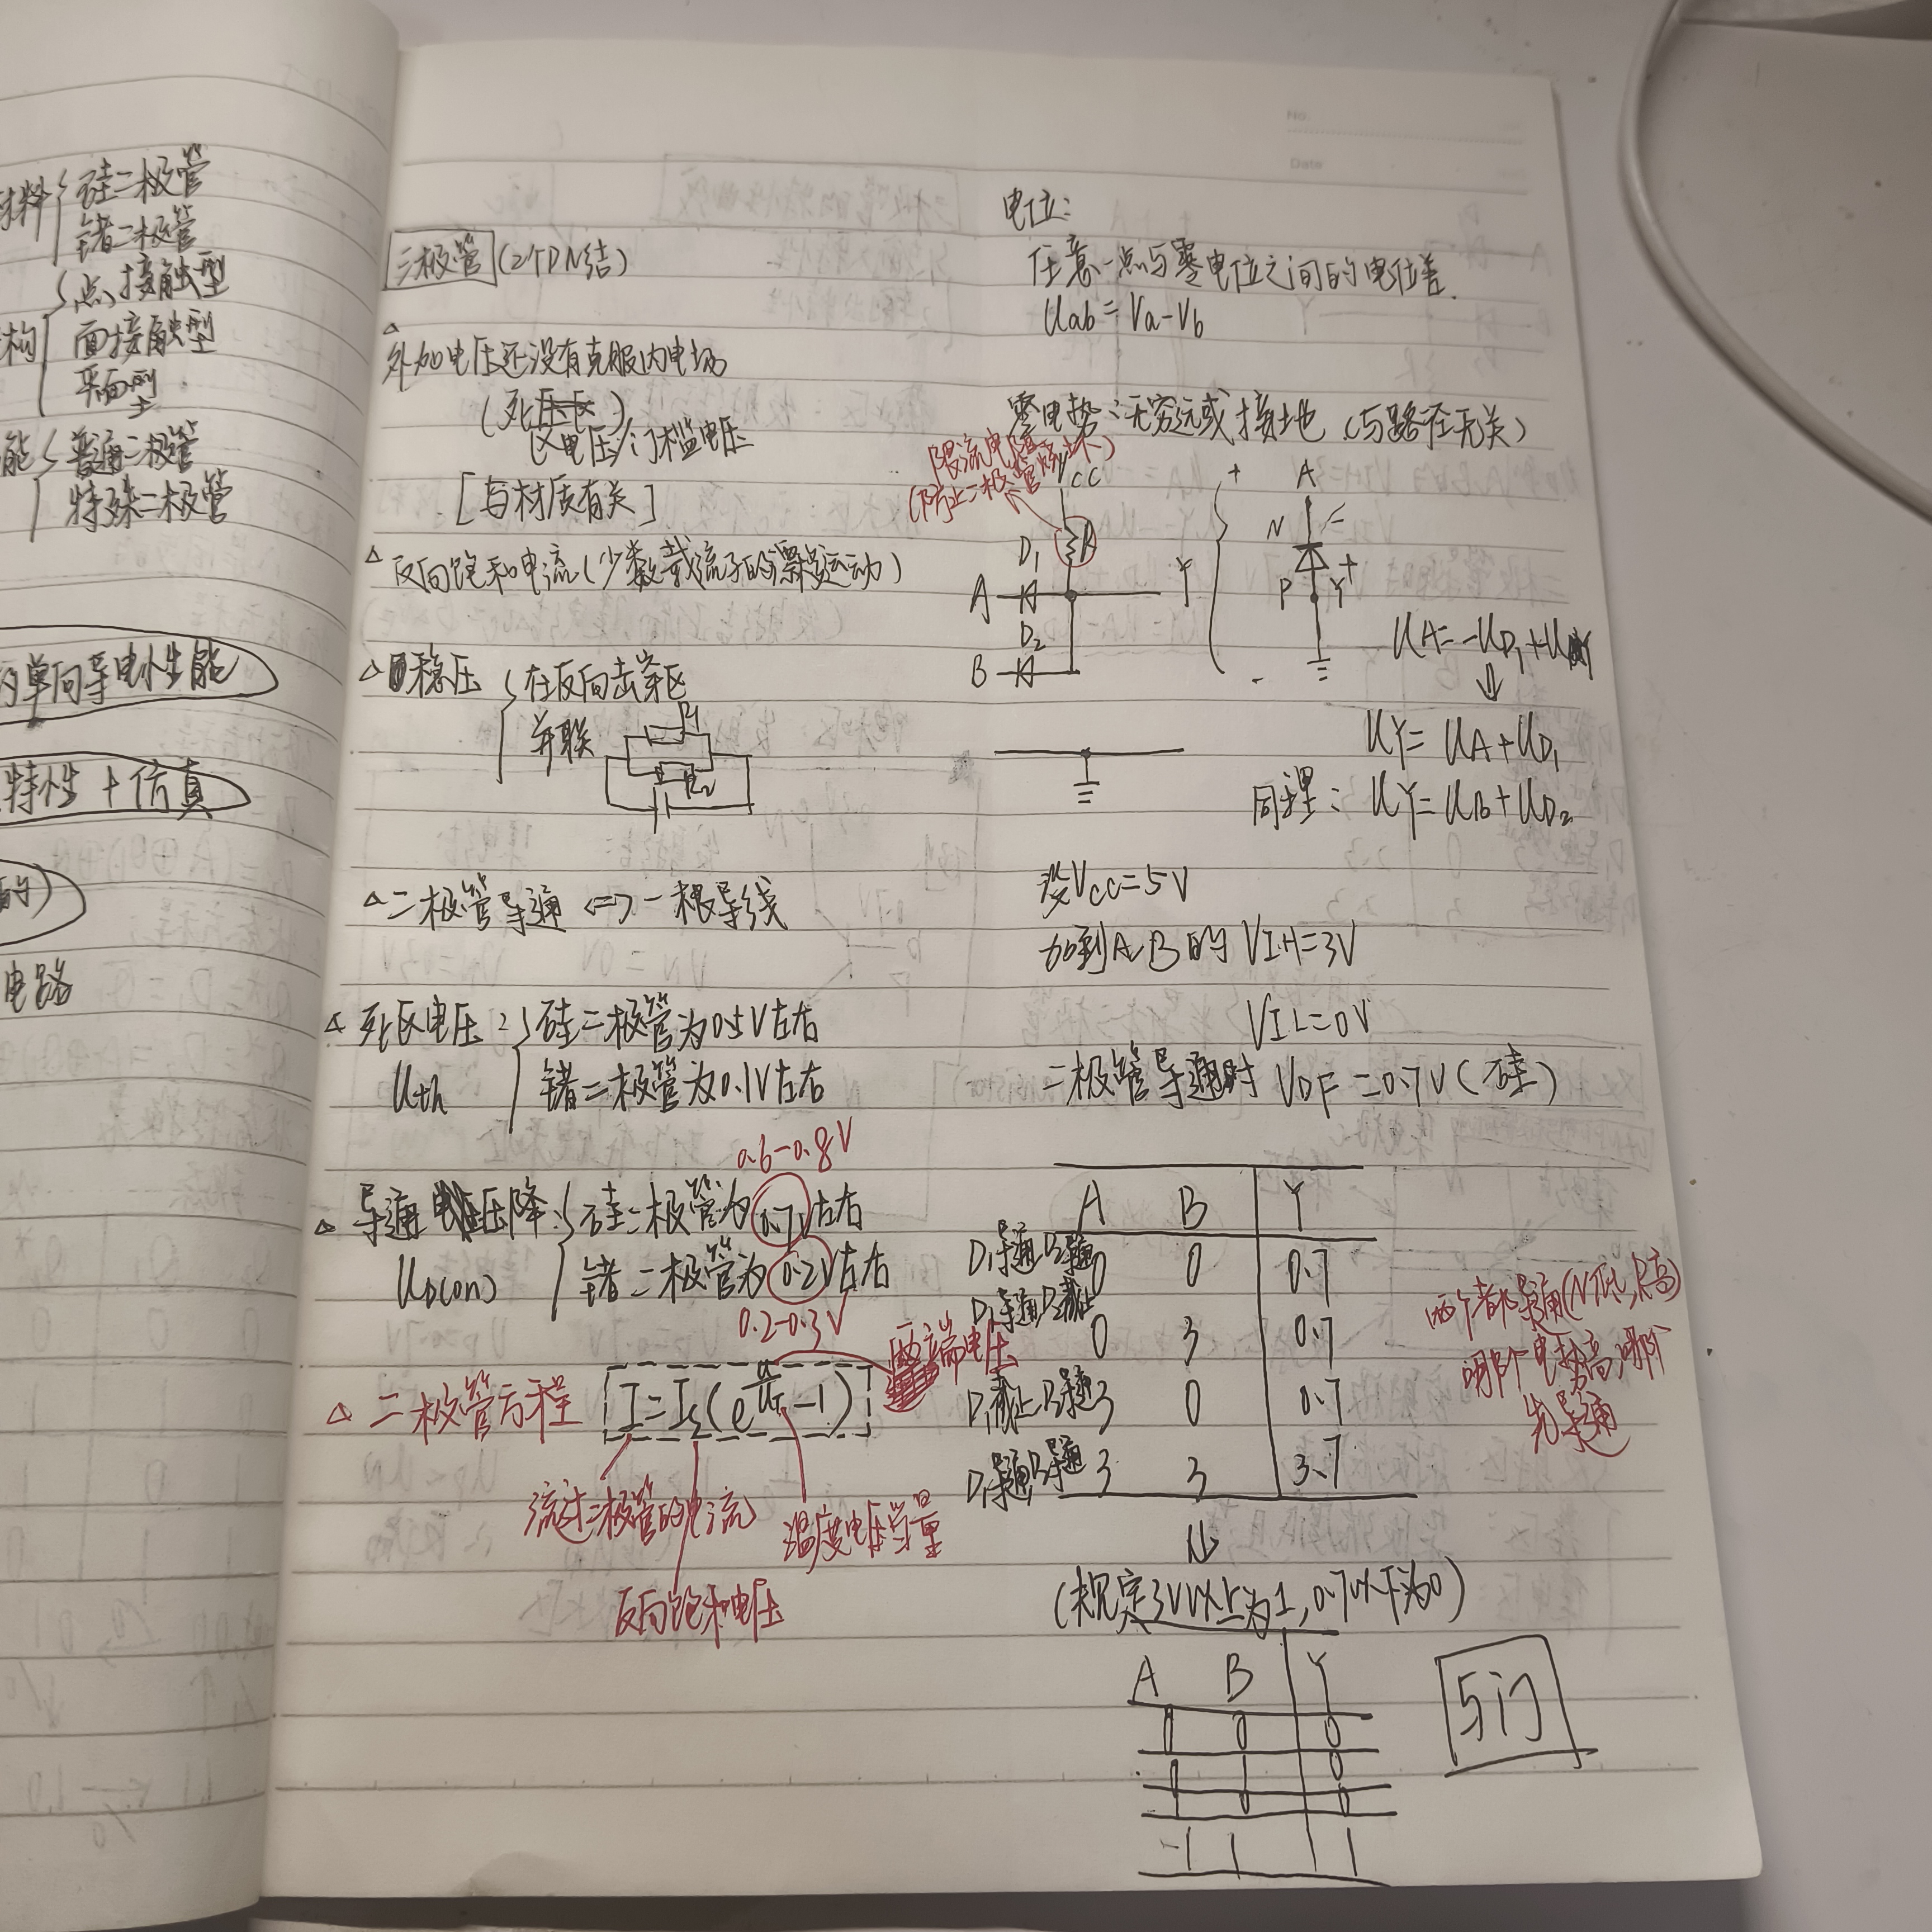 硅二极管
锗二极管
点接触型
面接触型
平面型
普通二极管
特殊二极管
单向导电性能
特性+仿真
电路
三极管(2个PN结)
外加电压还没有克服内电场
区电压/门槛电压
[与材质有关]
反向饱和电流(少数载流子的漂移运动)
稳压
在反向击穿区
并联
R₁
二极管导通⇔一根导线
死区电压:
硅二极管为0.5V左右
Uth
锗二极管为0.1V左右
0.6-0.8V
导通电压降:
硅二极管为0.7V左右
UD(on)
锗二极管为0.2V左右
0.2-0.3V
两端电压
二极管方程
I=Is(e^(u/UT)-1)
流过二极管的电流
温度电压当量
反向饱和电压
电位:
任意一点与零电位之间的电位差.
Uab=Va-Vb
零电势:无穷远或接地(与路径无关)
限流电阻
(防止二极管烧坏)
VCC
R
D₁
A
Y
D₂
B
+ A
N -
P Y +
-
UA=-UD₁+UY
⇓
UY=UA+UD₁
同理:UY=UB+UD₂
设VCC=5V
加到A、B的VIH=3V
VIL=0V
二极管导通时VDF=0.7V(硅)
A B Y
D₁导通D₂导通 0 0 0.7
D₁导通D₂截止 0 3 0.7
D₁截止D₂导通 3 0 0.7
D₁导通D₂导通 3 3 3.7
两个都导通(N低,P高)
哪个电势高,哪个
先导通
⇓
(规定3V以上为1,0.7V以下为0)
A B Y
0 0 0
0 1 0
1 0 0
1 1 1
与门